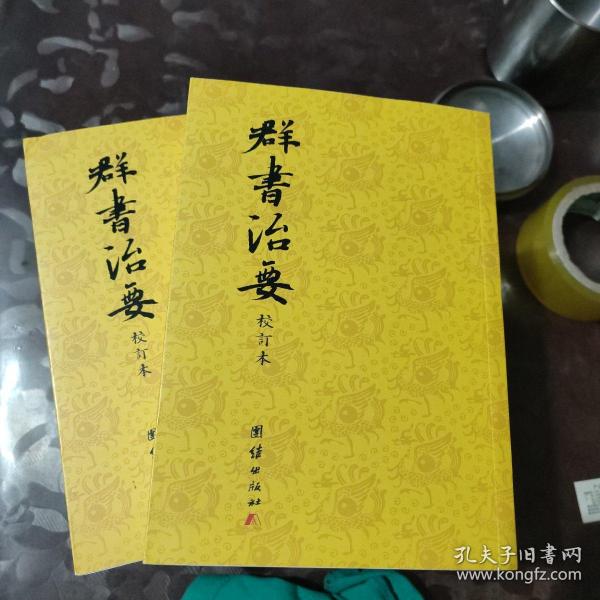 群書治要
校訂本
團结出版社
群書治要
校訂本
團结
孔夫子旧書网
www.kongfz.com